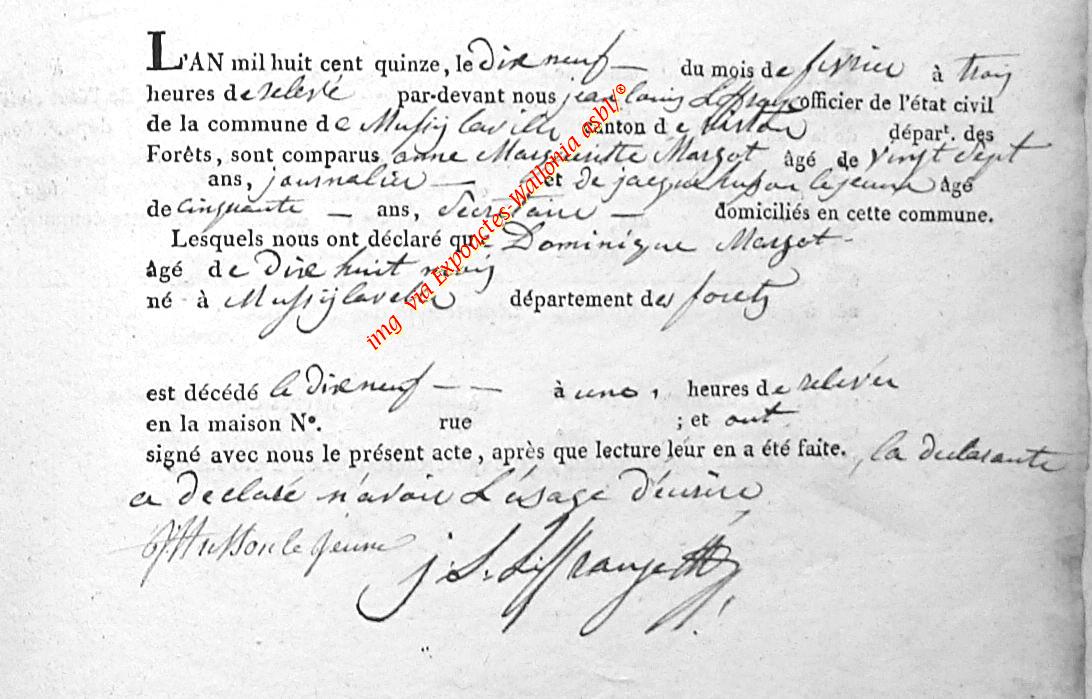 L'AN mil huit cent quinze, le dixe neuf du mois de fevrier à trois
heures de relevée par-devant nous jean louis officier de l'état civil
de la commune de Mussy laville canton de virton départ. des
Forêts, sont comparus anne Margueritte Margot âgé de vingt sept
ans, journalier et de jacque husson le jeune âgé
de cinquante ans, Secretaire domiciliés en cette commune.
Lesquels nous ont déclaré que Dominique Margot
âgé de Dixe huit mois
né à Mussy département des forets
est décédé le dixe neuf à une heures de relevée
en la maison N°. rue ; et ont
signé avec nous le présent acte, après que lecture leur en a été faite. la declarante
a declaré n'avoir L'usage d'écrire
Husson le jeune j. L.
img via Expouctes-Wallonia asbl/®